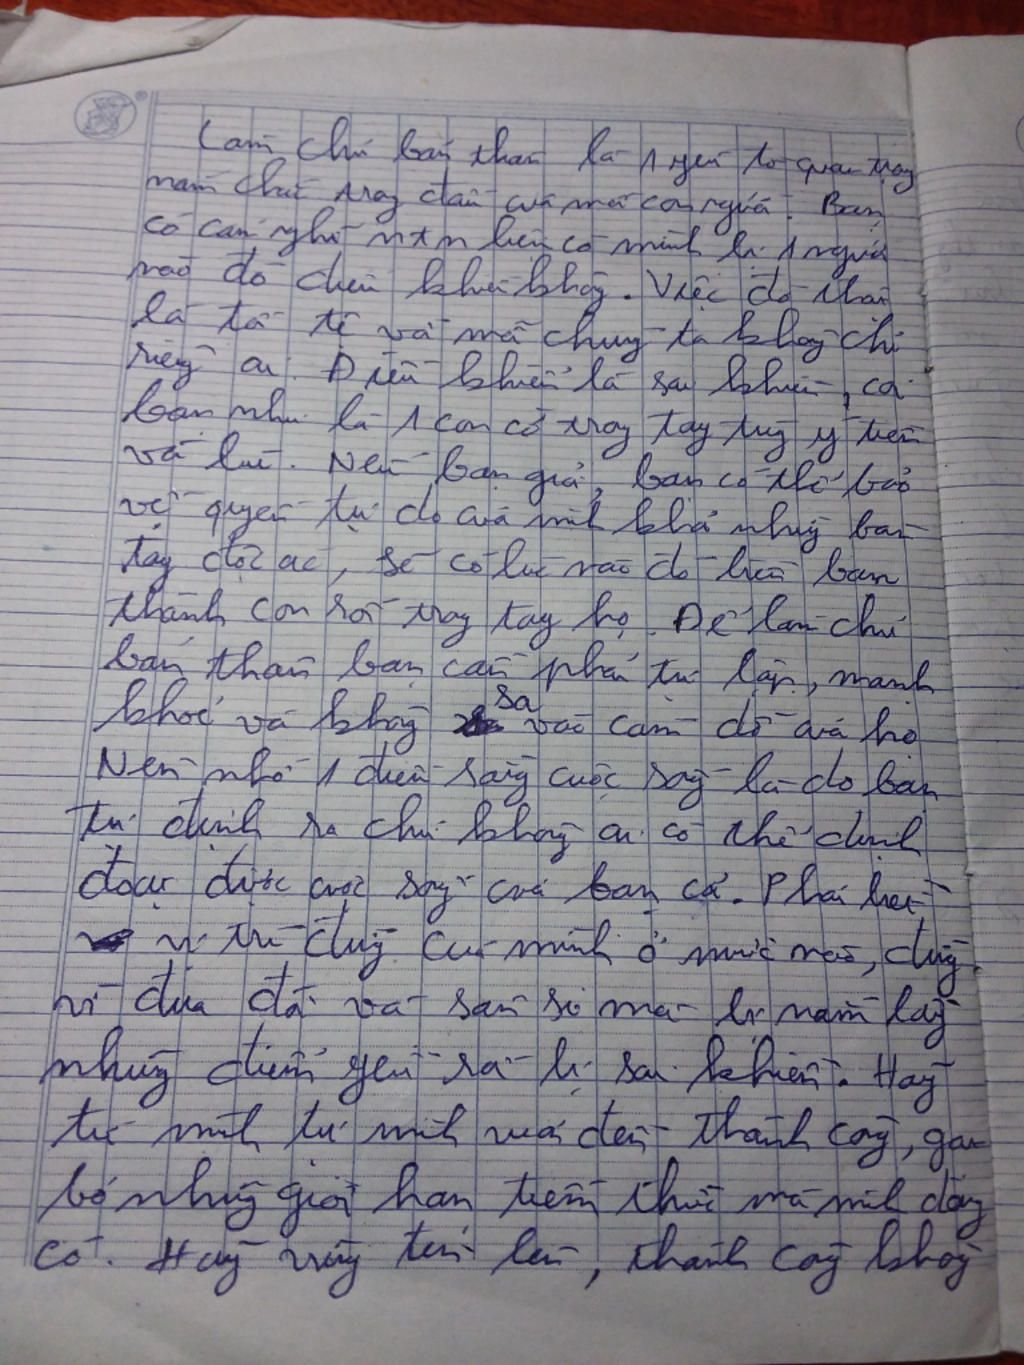 Làm chủ bản thân là 1 yếu tố quan trọng
nằm chủ trong đầu của mỗi con người. Bạn
có cảm nghĩ ntn khi có mình bị 1 người
nào đó điều khiển không. Việc đó thật
là tồi tệ và mỗi chúng ta không chỉ
riêng ai. Điều khiển là sai khiến, coi
bạn như là 1 con cờ trong tay tuỳ ý tiến
và lùi. Nếu bạn giả, bạn có thể bảo
vệ quyền tự do của mình khỏi những bàn
tay độc ác, sẽ có lúc nào đó biến bạn
thành con rối trong tay họ. Để làm chủ
bản thân bạn cần phải tự lập, mạnh
khoẻ và không sa vào cám dỗ của họ
Nên nhớ 1 điều rằng cuộc sống là do bạn
tự định ra chứ không ai có thể định
đoạt được cuộc sống của bạn cả. Phải biết
vị trí đứng của mình ở mức nào, đừng
vì đua đòi và san sẻ mà bị nắm lấy
những điểm yếu rồi bị sai khiến. Hãy
tự mình tự mình vươn đến thành công, gạt
bỏ những giới hạn tiềm thức mà mình đang
có. Hãy vững tiến lên, thành công không